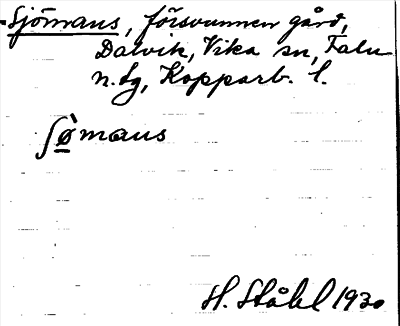 Sjömaus, försvunnen gård,
Dalvik, Vika sn, Falu
n. dg, Kopparb. l.
ʃö̀maus
H. Ståhl 1930